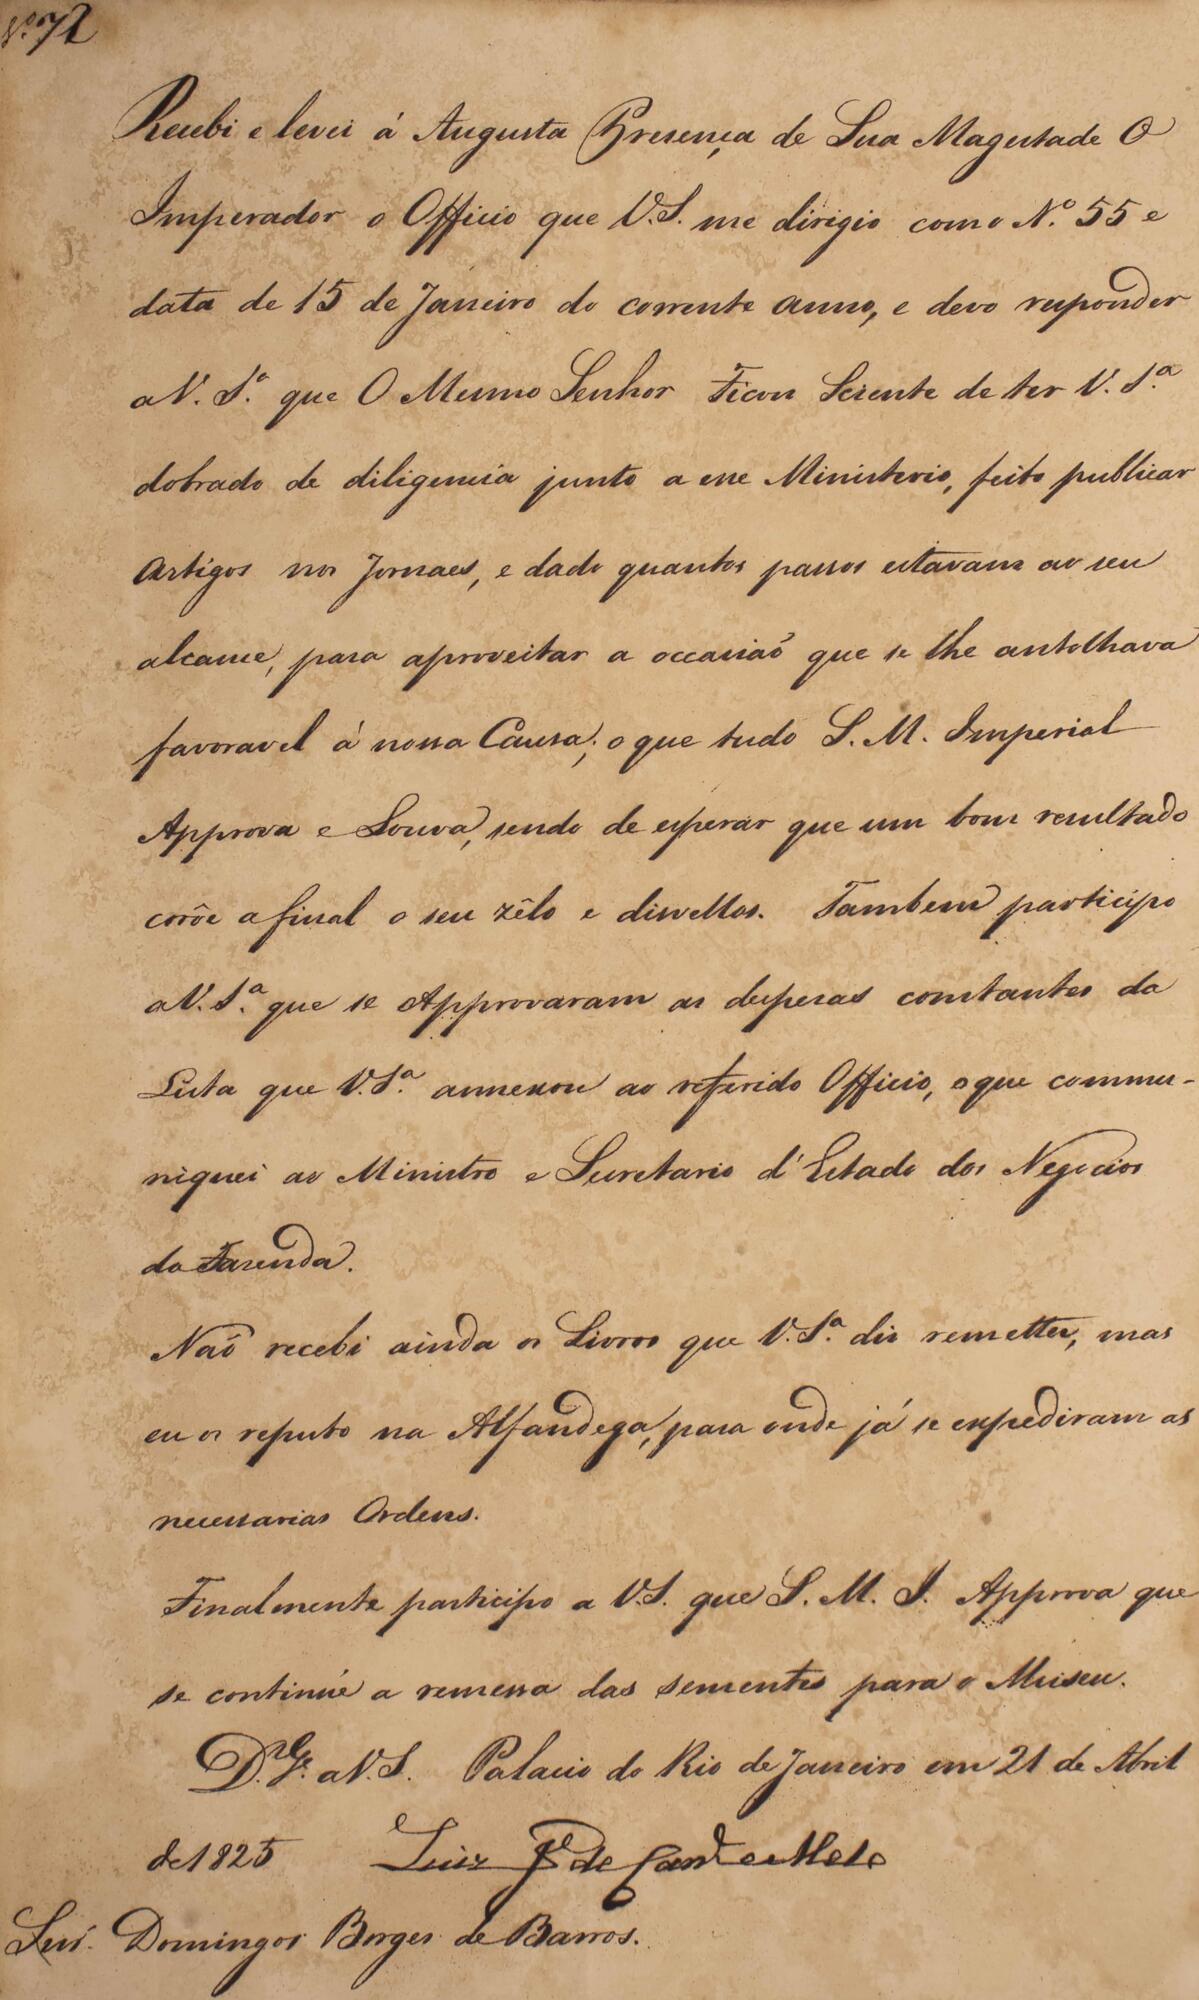 Nº 72
Recebi e levei á Augusta Presença de Sua Magestade O
Imperador o Officio que V.S. me dirigio com o Nº. 55 e
data de 15 de Janeiro do corrente anno, e devo responder
a V. Sª. que O Mesmo Senhor Ficou Sciente de ter V. Sª.
dobrado de diligencia junto a esse Ministerio, feito publicar
Artigos nos Jornaes, e dado quantos passos estavam ao seu
alcance, para aproveitar a occasiaõ que se lhe antolhava
favoravel á nossa Causa; o que tudo S. M. Imperial
Approva e Louva, sendo de esperar que um bom resultado
corôe a final o seu zêlo e disvellos. Tambem participo
a V. Sª. que se Approvaram as despesas constantes da
Lista que V. Sª. annexou ao referido Officio, o que commu-
niquei ao Ministro e Secretario d'Estado dos Negocios
da Fazenda.
Naõ recebi ainda os Livros que V. Sª. diz remetter, mas
eu os reputo na Alfandega, para onde já se expediram as
necessarias Ordens.
Finalmente participo a V.S. que S. M. I. Approva que
se continúe a remessa das sementes para o Museu.
D.s G.e a V. S. Palacio do Rio de Janeiro em 21 de Abril
de 1825 Luiz Jé de Carvº e Mello
Senr. Domingos Borges de Barros.